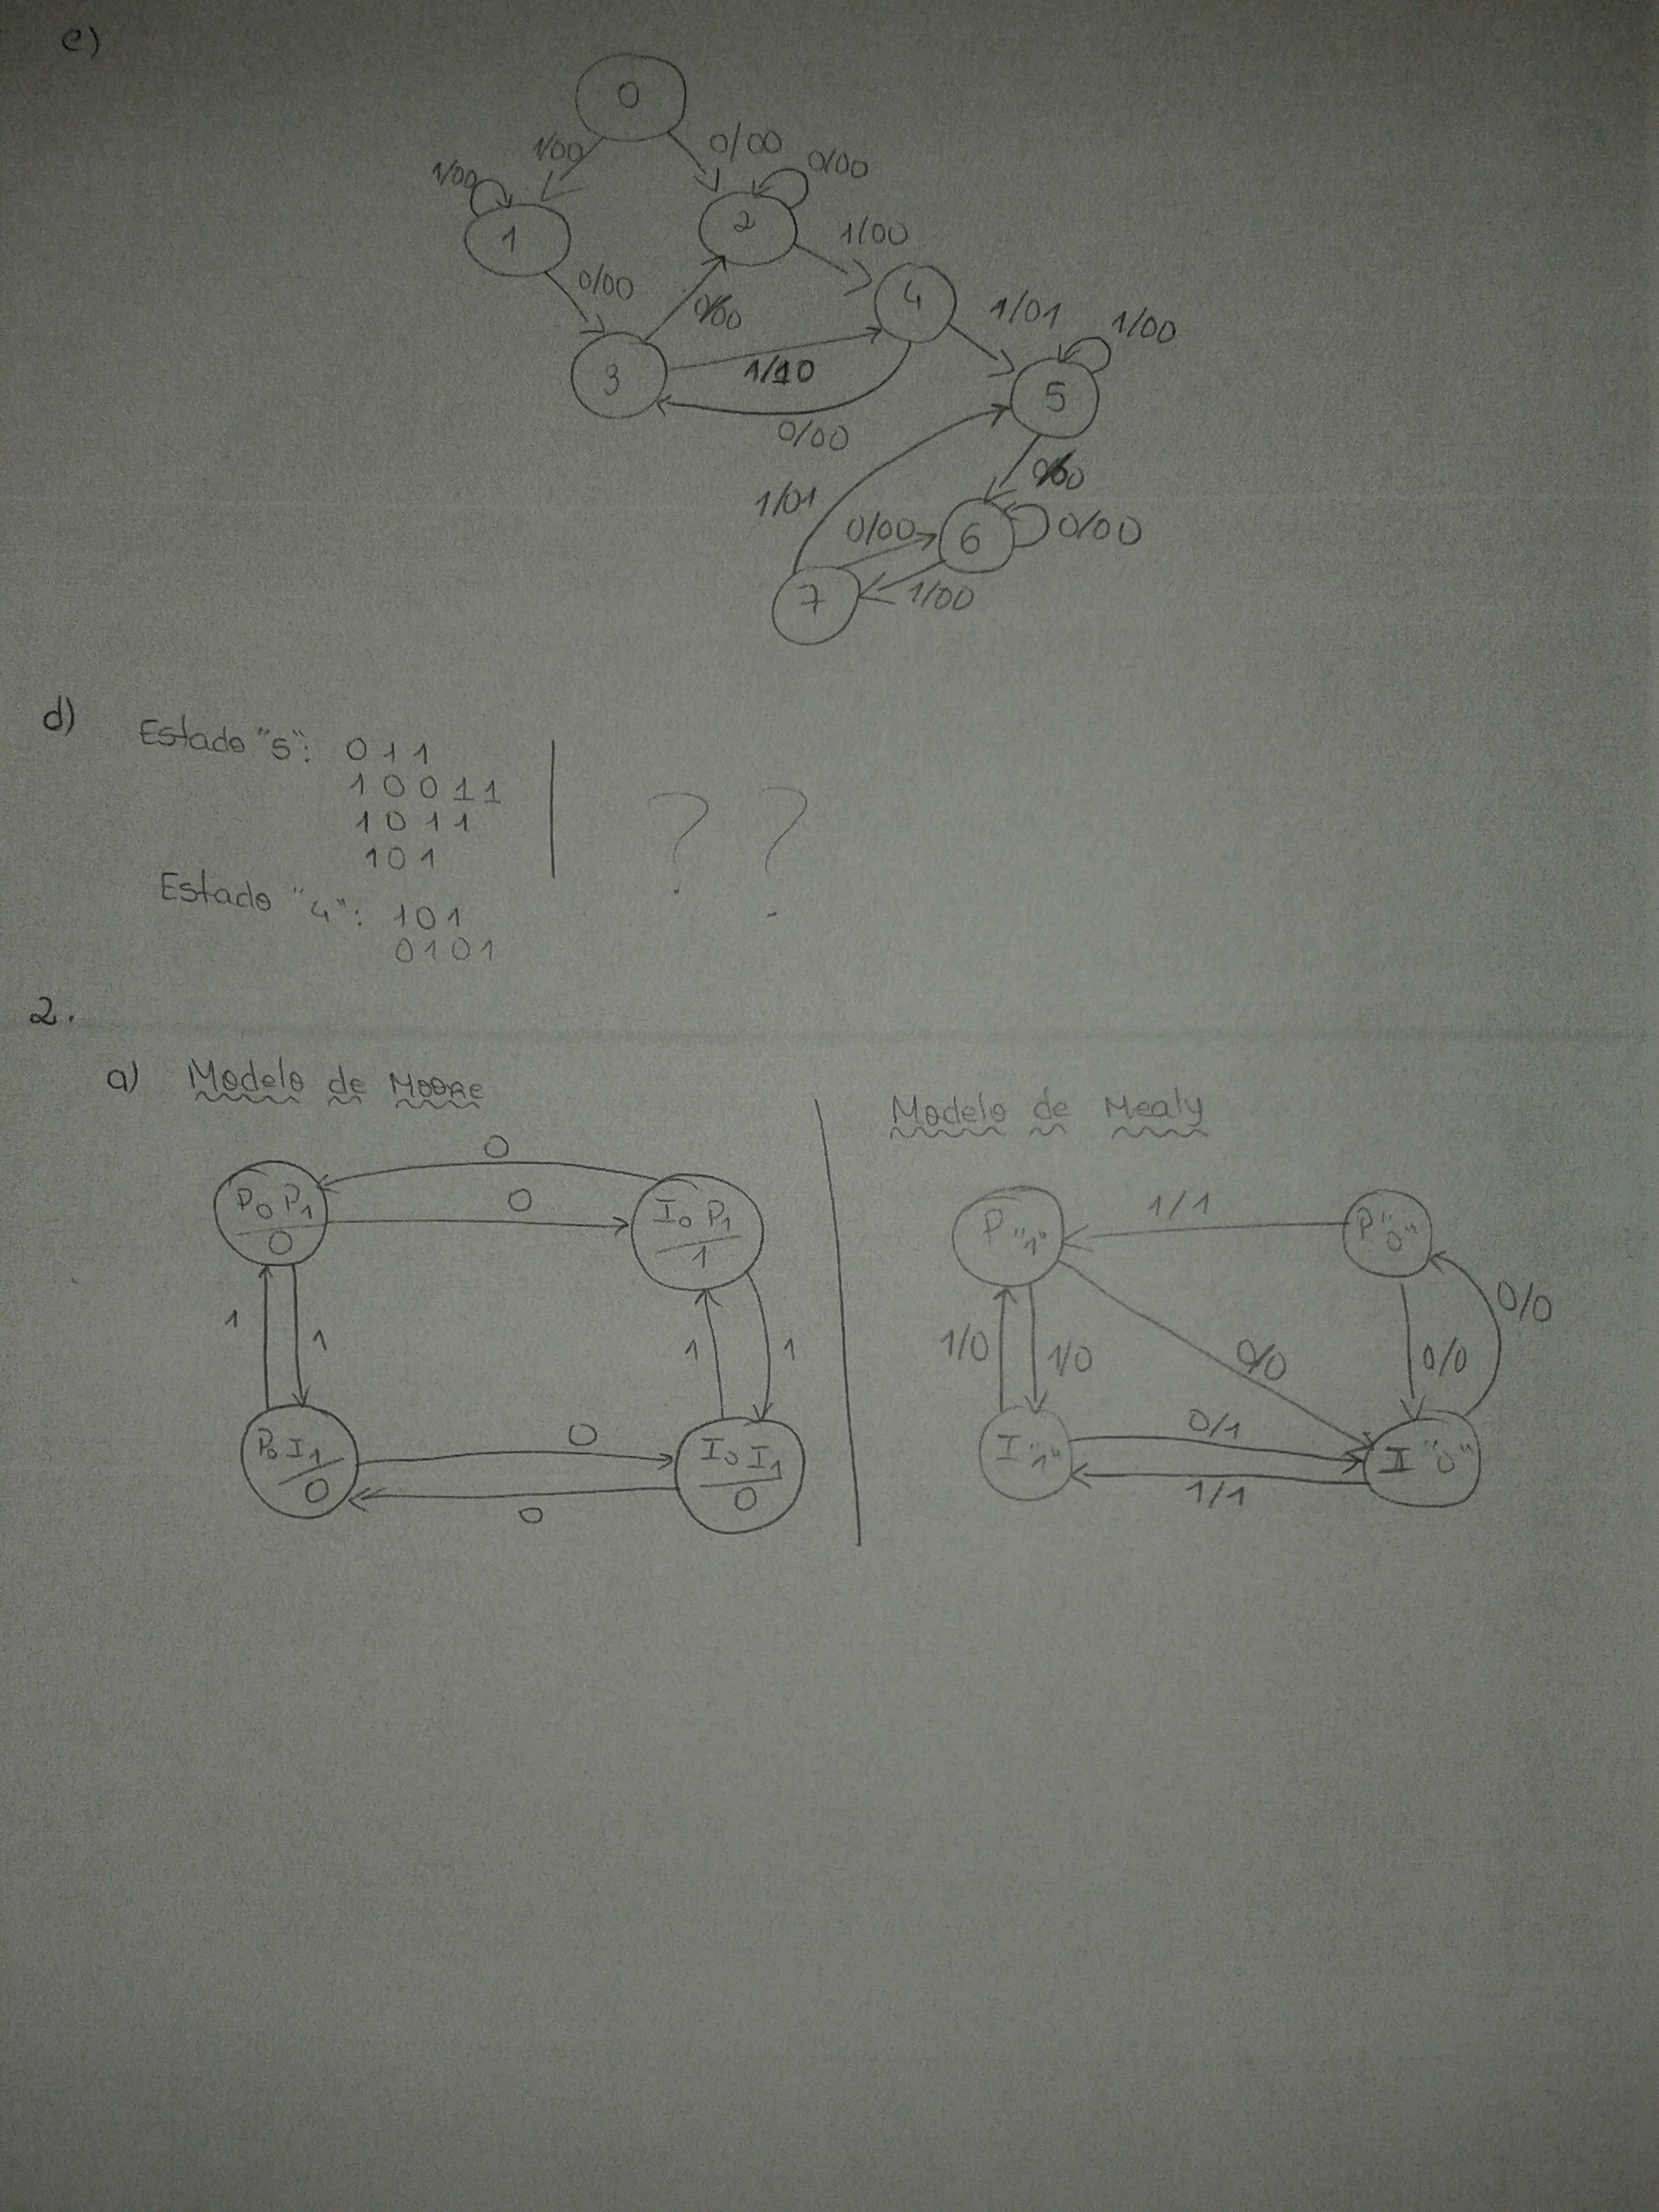 e)
0
1/00 0/00 0/00
1/00
1 2 1/00
0/00 0/00 4 1/01 1/00
3 1/10 5
0/00
1/01 0/00 6 0/00
7 1/00
d) Estado "5": 011
10011
1011
101
? ?
Estado "4": 101
0101
2.
a) Modelo de Moore
0
P0 P1 0 I0 P1
0 1
1 1 1 1
P0 I1 0 I0 I1
0 0
0
Modelo de Mealy
P "1" 1/1 P "0"
1/0 1/0 0/0 0/0 0/0
I "1" 0/1 I "0"
1/1